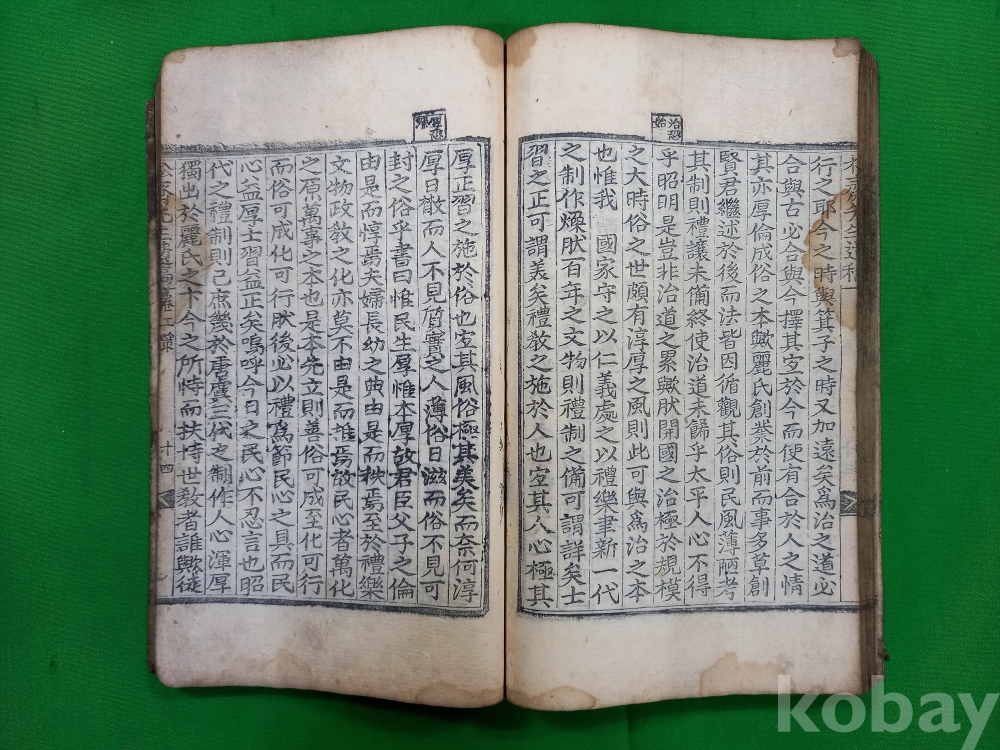 治恐
始
行之耶今之時與箕子之時又加遠矣爲治之道必
合與古必合與今擇其宜於今而便有合於人之情
其亦厚倫成俗之本歟麗氏創業於前而事多草創
賢君繼述於後而法皆因循觀其俗則民風薄陋考
其制則禮讓未備終使治道未歸乎太平人心不得
乎昭明是豈非治道之累歟肰開國之治極於規模
之大時俗之世頗有淳厚之風則此可與爲治之本
也惟我 國家守之以仁義處之以禮樂聿新一代
之制作燥肰百年之文物則禮制之備可謂詳矣士
習之正可謂美矣禮敎之施於人也宜其人心極其
厚恐
厚正習之施於俗也宜其風俗極其美矣而奈何淳
厚日橵而人不見質實之人薄俗日滋而俗不見可
封之俗乎書曰惟民生厚惟本厚故君臣父子之倫
由是而惇焉夫婦長幼之典由是而秩焉至於禮樂
文物政敎之化亦莫不由是而焉故民心者萬化
之原萬事之本也是本先立則善俗可成至化可行
而俗可成化可行肰後必以禮爲節民心之具而民
心益厚士習益正矣嗚呼今日之民心不忍言也昭
代之禮制則已庶幾於唐虞三代之制作人心渾厚
獨出於麗氏之下今之所恃而扶持世敎者誰歟徒
十四
kobay